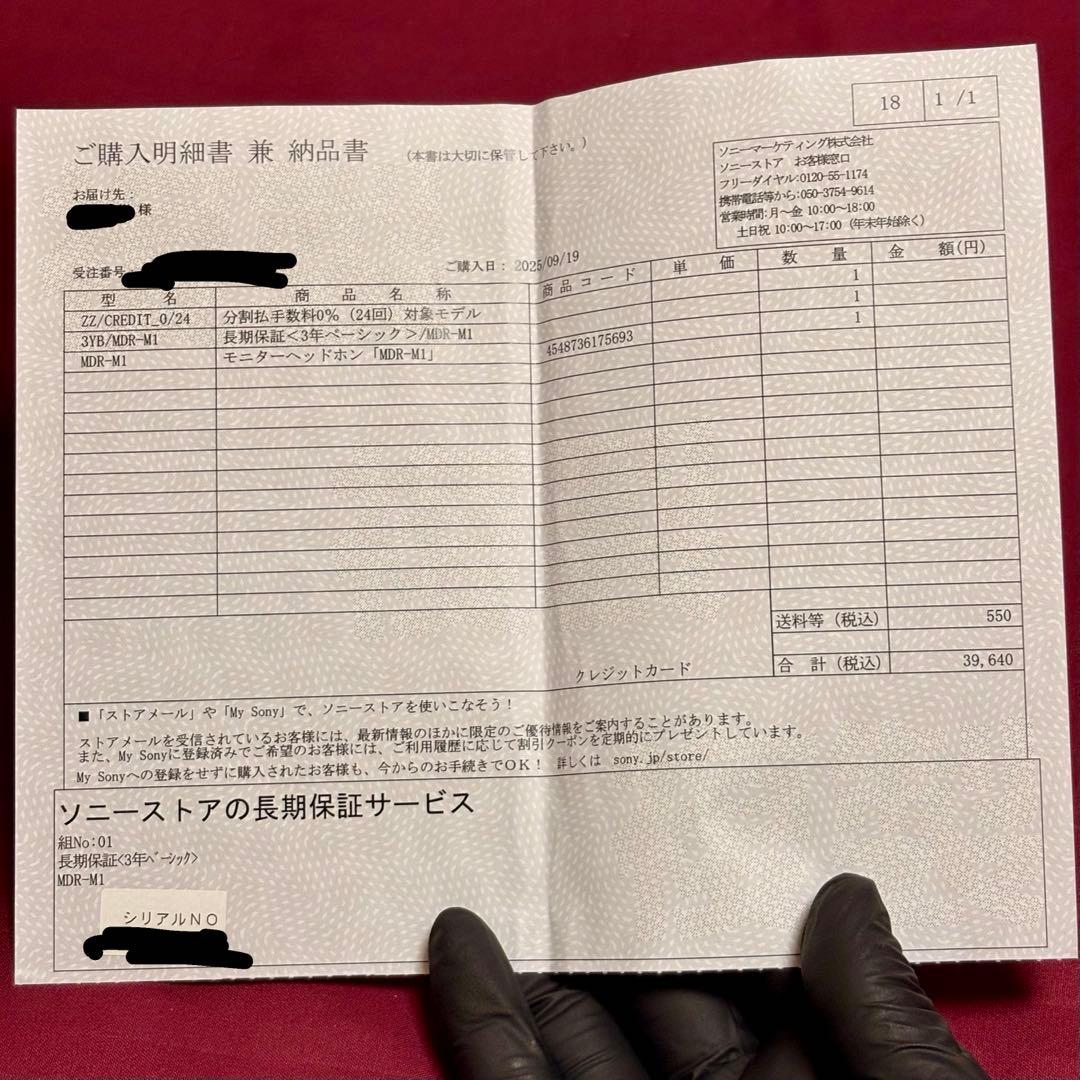 18 1 /1
ご購入明細書 兼 納品書 (本書は大切に保管して下さい。)
ソニーマーケティング株式会社
ソニーストア お客様窓口
フリーダイヤル:0120-55-1174
携帯電話等から:050-3754-9614
営業時間:月～金 10:00～18:00
土日祝 10:00～17:00 (年末年始除く)
お届け先:
様
受注番号
ご購入日: 2025/09/19
型 名 商 品 名 称 商品コード 単 価 数 量 金 額(円)
ZZ/CREDIT_0/24 分割払手数料0% (24回) 対象モデル 1
3YB/MDR-M1 長期保証<3年ベーシック>/MDR-M1 1
MDR-M1 モニターヘッドホン「MDR-M1」 4548736175693 1
送料等 (税込) 550
クレジットカード 合 計 (税込) 39,640
■「ストアメール」や「My Sony」で、ソニーストアを使いこなそう!
ストアメールを受信されているお客様には、最新情報のほかに限定のご優待情報をご案内することがあります。
また、My Sonyに登録済みでご希望のお客様には、ご利用履歴に応じて割引クーポンを定期的にプレゼントしています。
My Sonyへの登録をせずに購入されたお客様も、今からのお手続きでOK! 詳しくは sony.jp/store/
ソニーストアの長期保証サービス
組No:01
長期保証<3年ﾍﾞｰｼｯｸ>
MDR-M1
シリアルNO